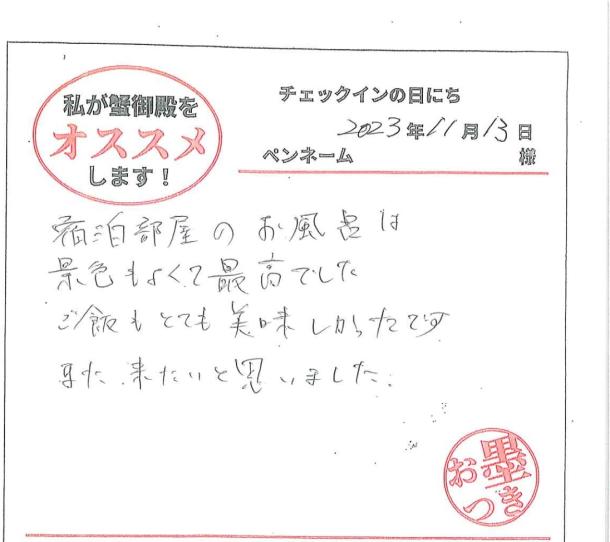 私が蟹御殿を
オススメ
します！
チェックインの日にち
2023年11月13日
ペンネーム 様
宿泊部屋のお風呂は
景色もよくて最高でした
ご飯もとても美味しかったです
また来たいと思いました.
お墨
つき